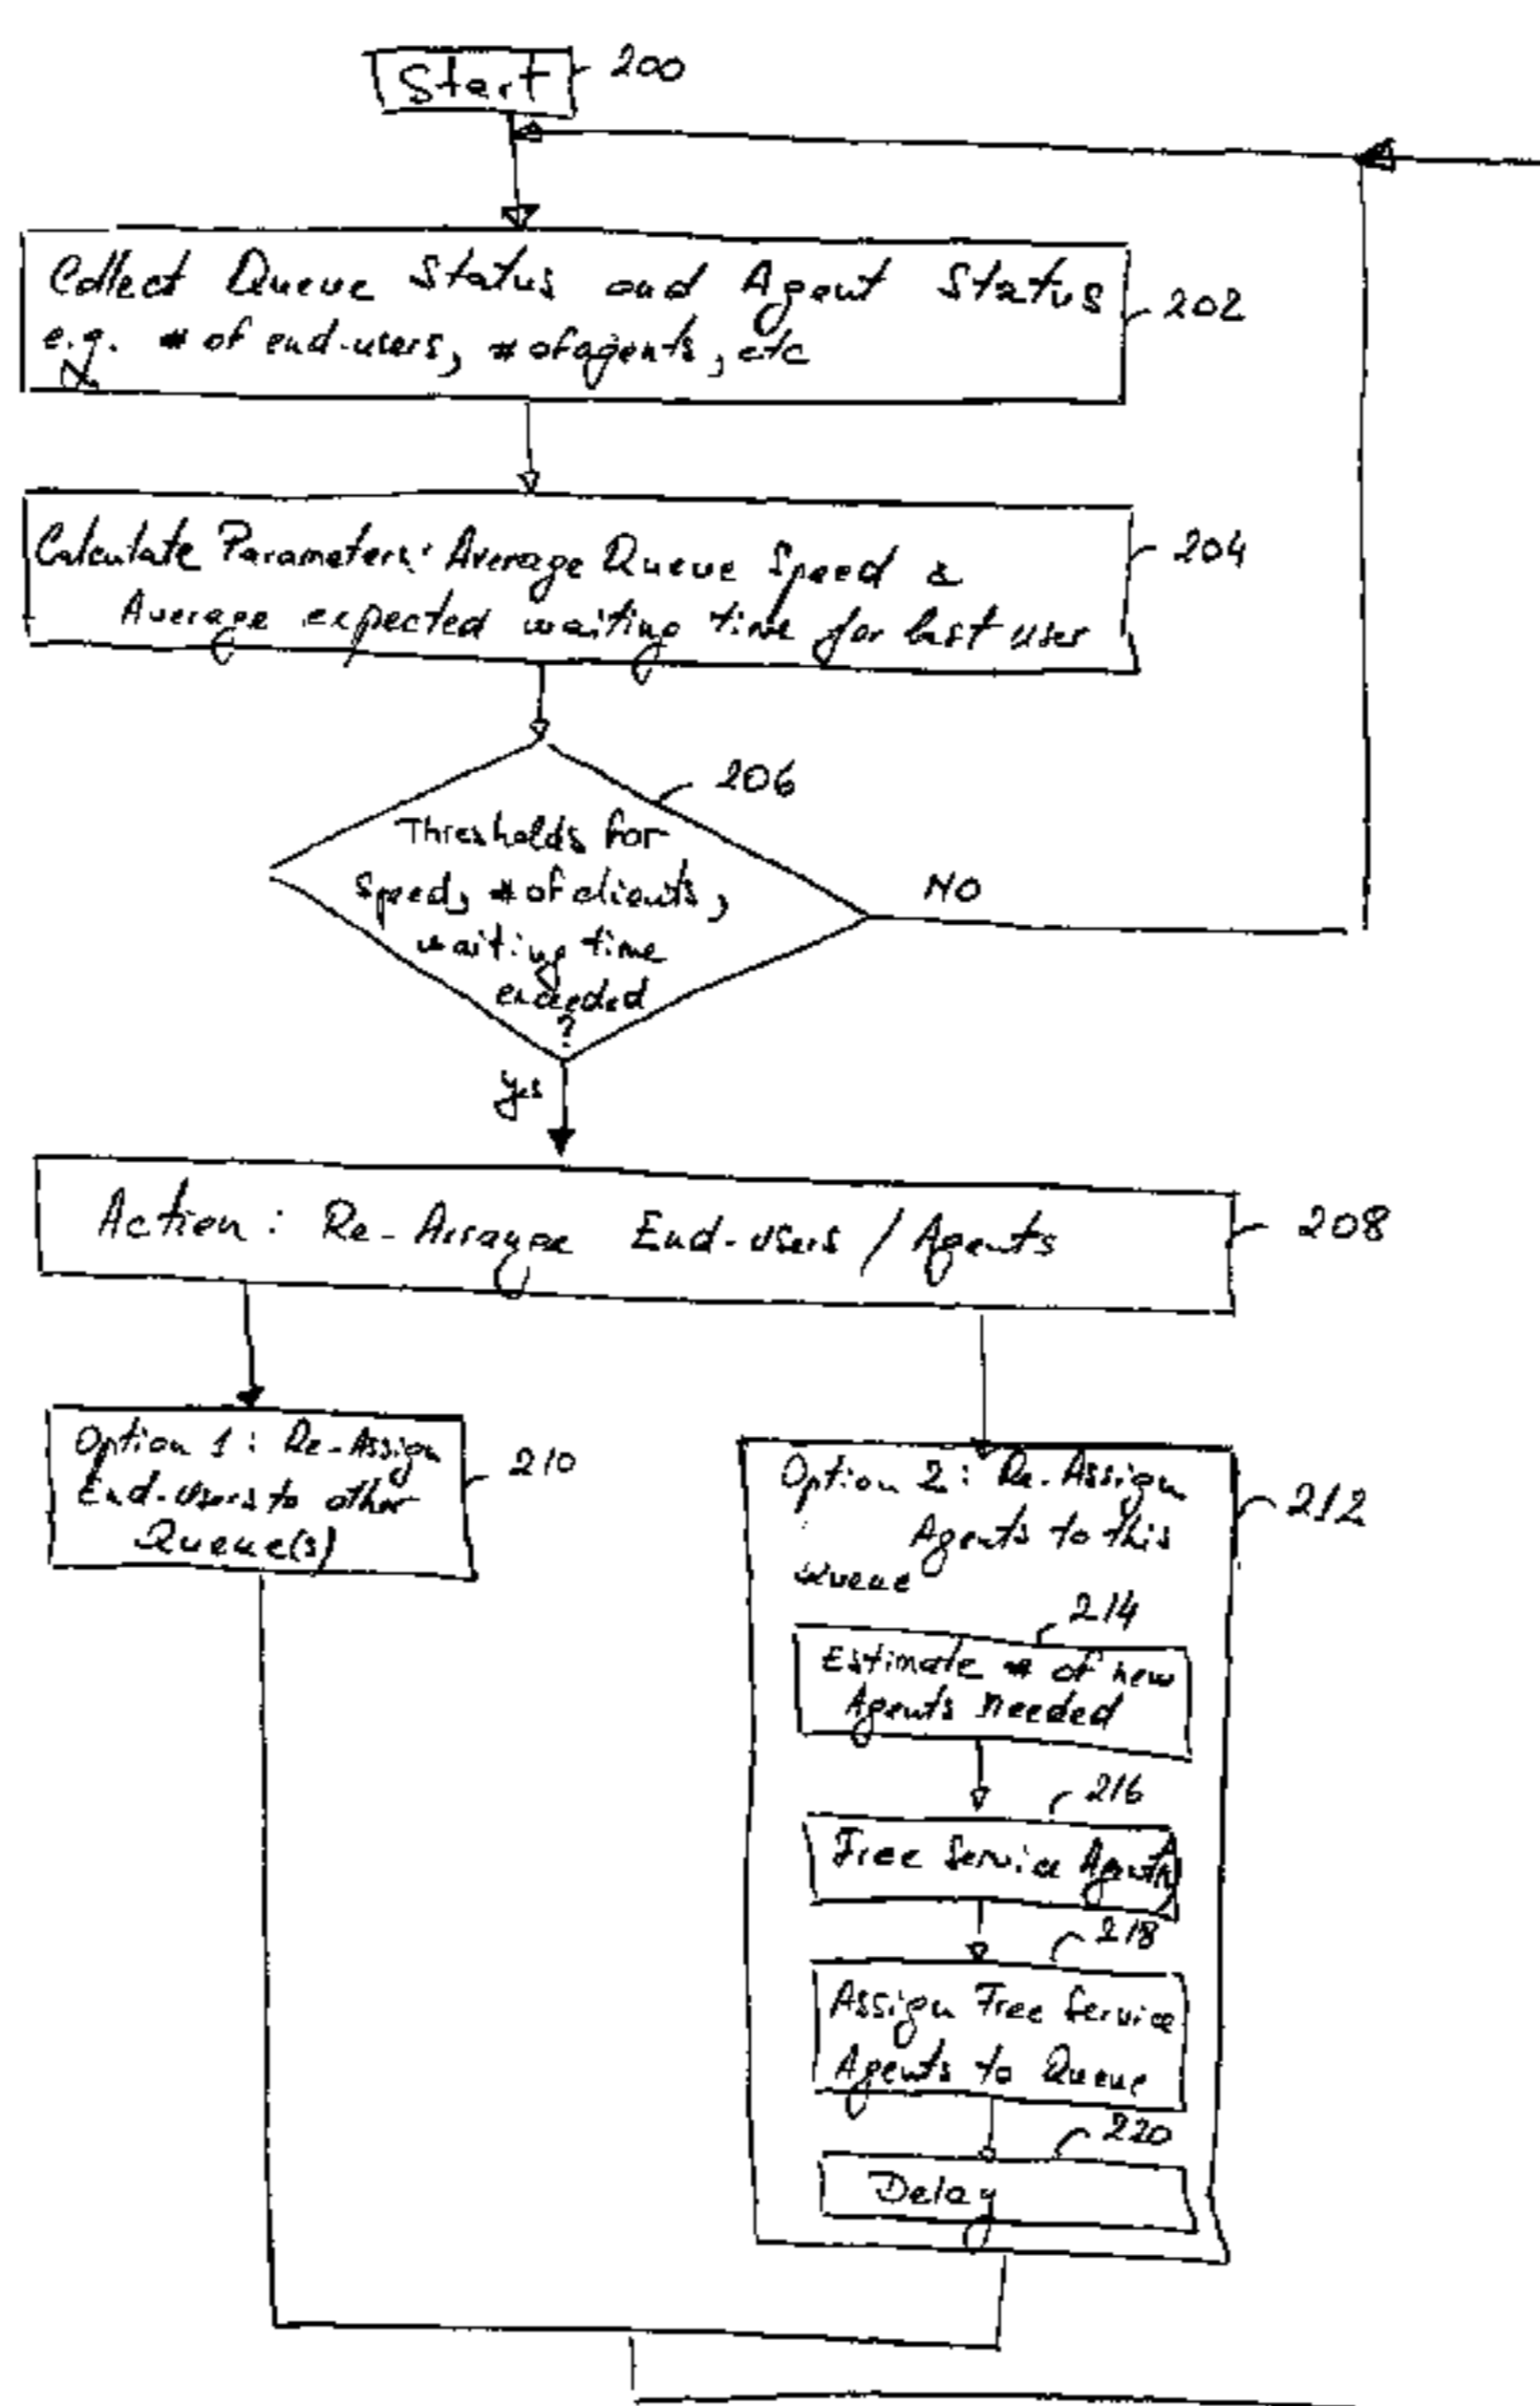 Start
200
Collect Queue Status and Agent Status
e.g. # of end-users, # of agents, etc
202
Calculate Parameters: Average Queue Speed &
Average expected waiting time for last user
204
206
Thresholds for
speed, # of clients,
waiting time
exceeded
?
NO
yes
Action: Re-Arrange End-users / Agents
208
Option 1: Re-Assign
End-Users to other
Queue(s)
210
Option 2: Re-Assign
Agents to this
queue
212
214
Estimate # of new
Agents needed
216
Free Service Agents
218
Assign Free Service
Agents to Queue
220
Delay